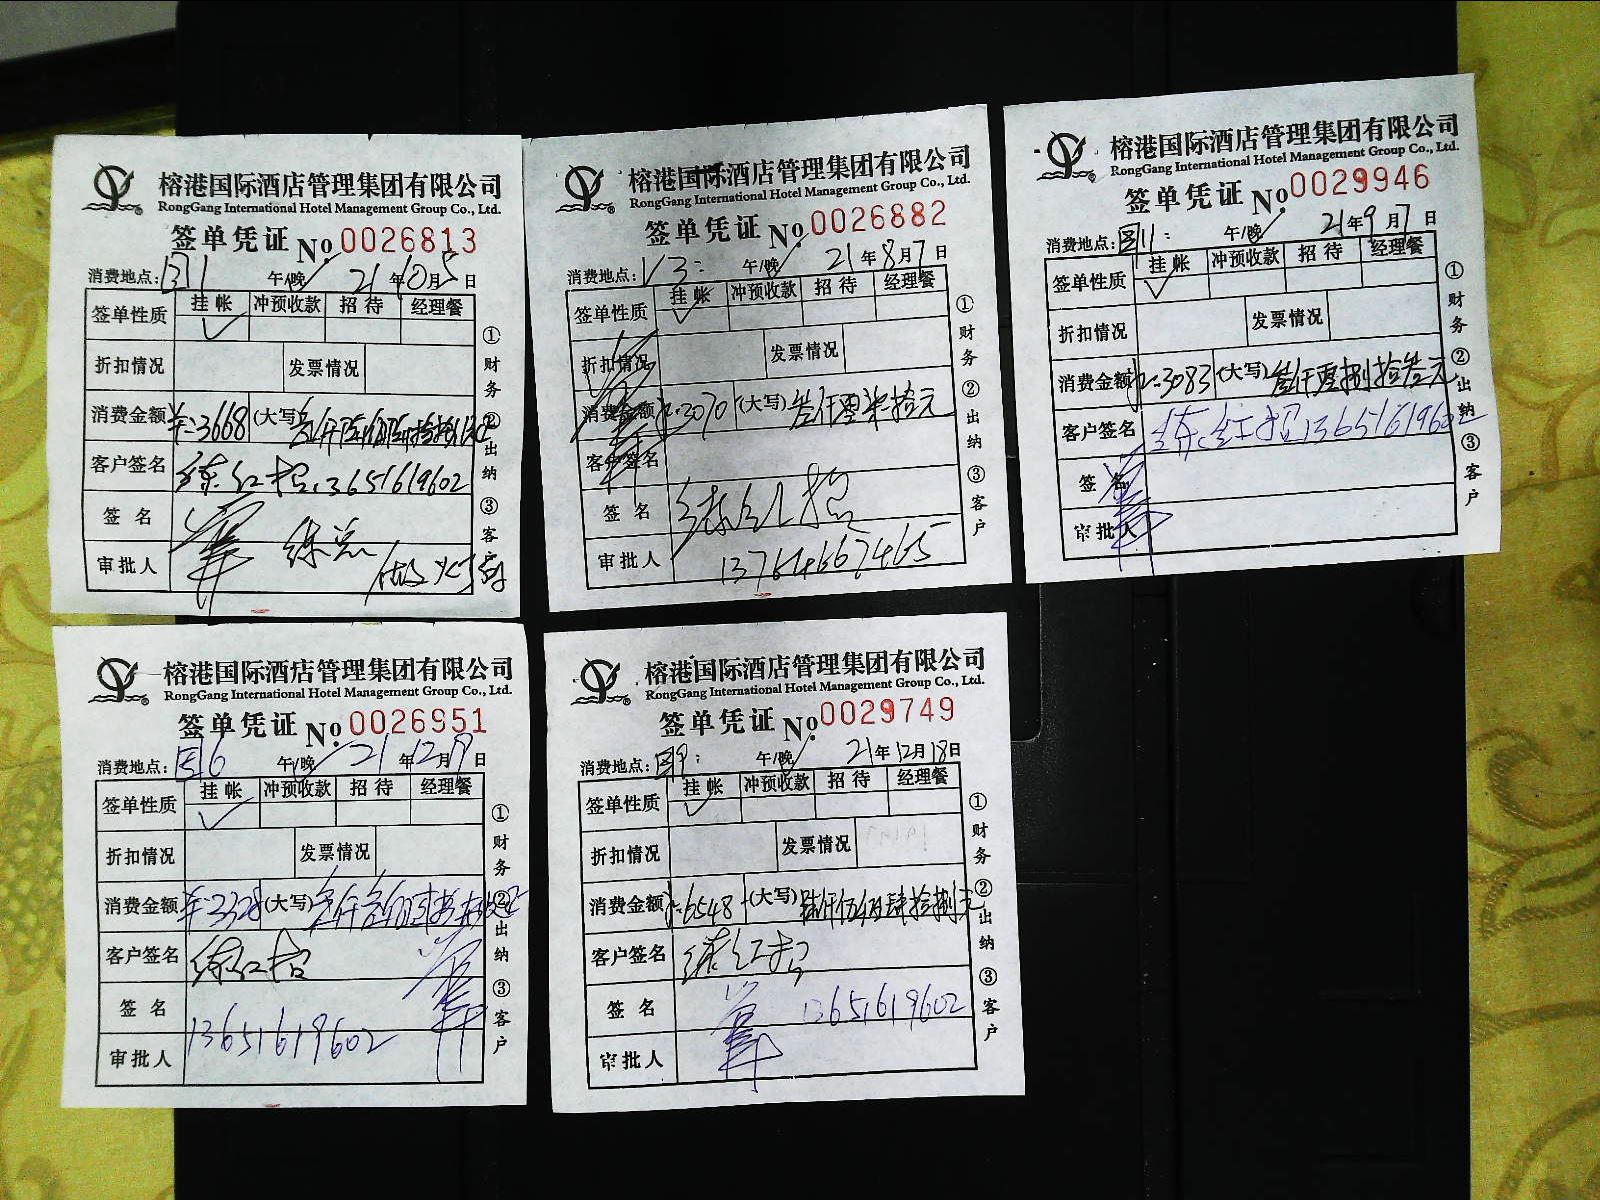 榕港国际酒店管理集团有限公司
RongGang International Hotel Management Group Co., Ltd.
签单凭证 No. 0026813
消费地点: 午/晚 21年10月5日
签单性质 挂帐 冲预收款 招待 经理餐
折扣情况 发票情况
消费金额 ¥:3668 (大写) 叁仟陆佰陆拾捌元
客户签名 练红招 13651619602
签名 练总
审批人
①财务 ②出纳 ③客户
榕港国际酒店管理集团有限公司
RongGang International Hotel Management Group Co., Ltd.
签单凭证 No. 0026882
消费地点: V3: 午/晚 21年8月7日
签单性质 挂帐 冲预收款 招待 经理餐
折扣情况 发票情况
消费金额 ¥:3070 (大写) 叁仟零柒拾元
客户签名
签名 练红招
审批人 13764667465
①财务 ②出纳 ③客户
榕港国际酒店管理集团有限公司
RongGang International Hotel Management Group Co., Ltd.
签单凭证 No. 0029946
消费地点: 午/晚 21年9月7日
签单性质 挂帐 冲预收款 招待 经理餐
折扣情况 发票情况
消费金额 ¥:3083 (大写) 叁仟零捌拾叁元
客户签名 练红招 13651619602
签名
审批人
①财务 ②出纳 ③客户
榕港国际酒店管理集团有限公司
RongGang International Hotel Management Group Co., Ltd.
签单凭证 No. 0026951
消费地点: 午/晚 21年12月17日
签单性质 挂帐 冲预收款 招待 经理餐
折扣情况 发票情况
消费金额 ¥:3328 (大写)
客户签名 练红招
签名
审批人 13651619602
①财务 ②出纳 ③客户
榕港国际酒店管理集团有限公司
RongGang International Hotel Management Group Co., Ltd.
签单凭证 No. 0029749
消费地点: 午/晚 21年12月18日
签单性质 挂帐 冲预收款 招待 经理餐
折扣情况 发票情况
消费金额 ¥:6548 (大写) 陆仟伍佰肆拾捌元
客户签名 练红招
签名 13651619602
审批人
①财务 ②出纳 ③客户